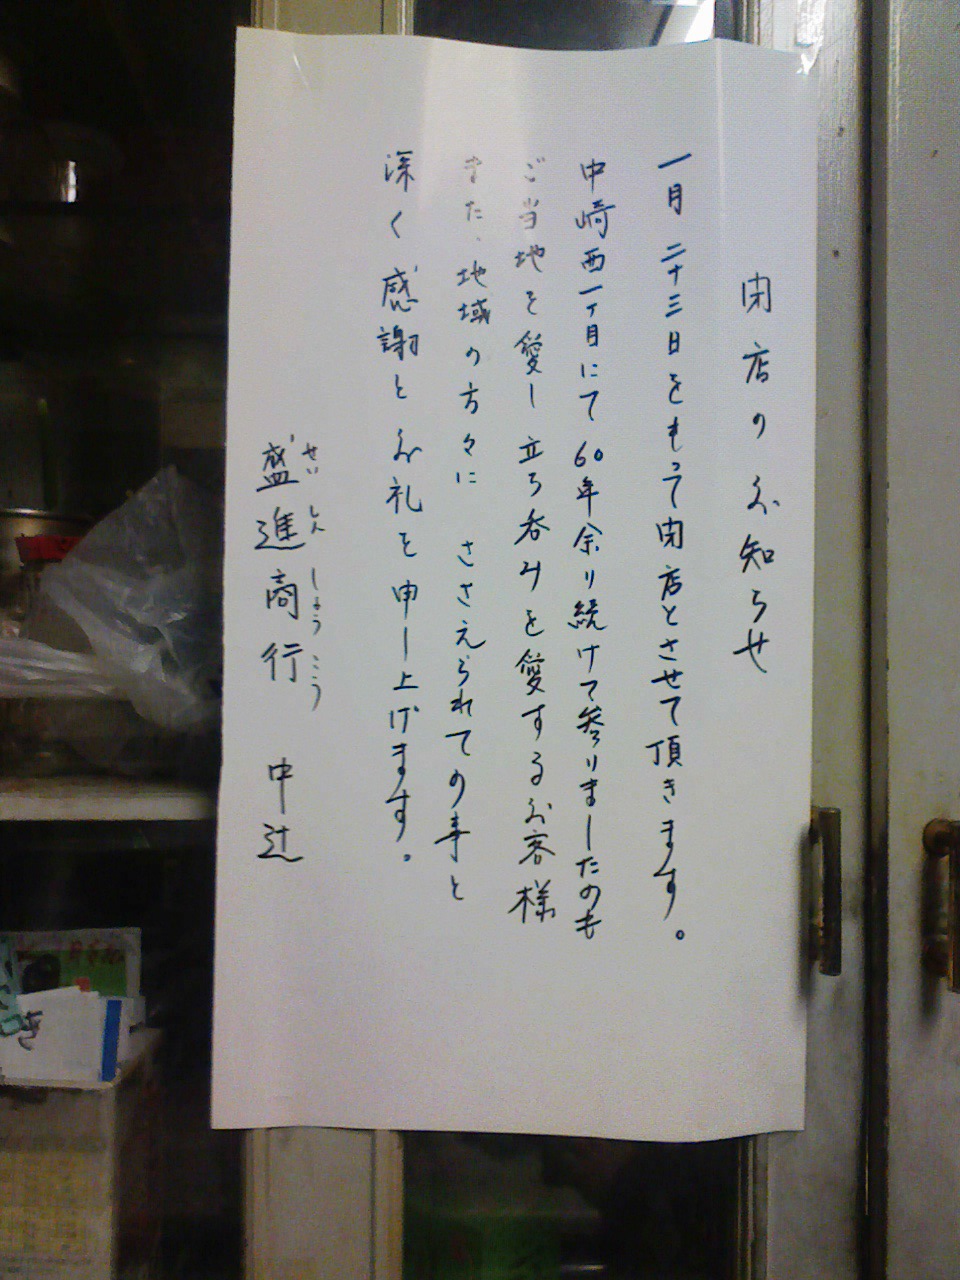 閉店のお知らせ
一月二十三日をもって閉店とさせて頂きます。
中崎西一丁目にて60年余り続けて参りましたのも
ご当地を愛し立ち呑みを愛するお客様
また、地域の方々にささえられての事と
深く感謝とお礼を申し上げます。
せいしんしょうこう
盛進商行 中辻